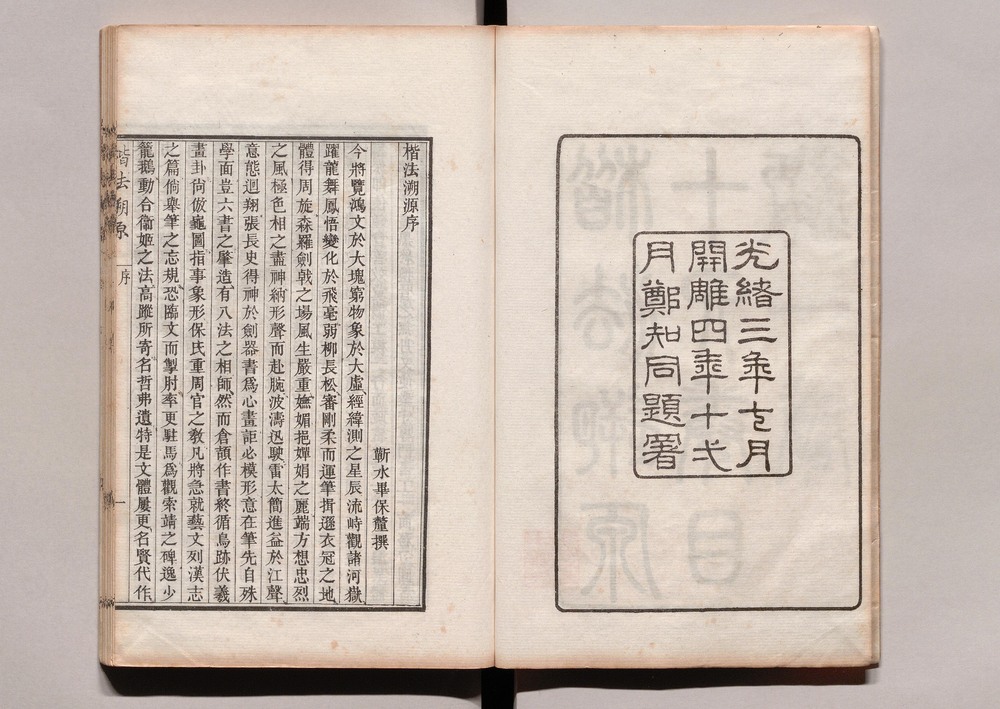 光緒三年七月
開雕四年十弍
月鄭知同題署
楷法溯源序
蘄水畢保釐撰
今將覽鴻文於大塊窮物象於大虛經緯測之星辰流峙觀諸河嶽
躍龍舞鳳悟變化於飛毫弱柳長松審剛柔而運筆揖遜衣冠之地
體得周旋森羅劍戟之場風生嚴重嫵媚挹嬋娟之麗端方想忠烈
之風極色相之盡神納形聲而赴腕波濤迅駛雷太簡進益於江聲
意態迴翔張長史得神於劍器書爲心畫詎必模形意在筆先自殊
學面豈六書之肇造有八法之相師然而倉頡作書終循鳥跡伏羲
畫卦尚倣龜圖指事象形保氏重周官之教凡將急就藝文列漢志
之篇倘舉筆之忘規恐臨文而掣肘率更駐馬爲觀索靖之碑逸少
籠鵝動合衞姬之法高蹤所寄名哲弗遺特是文體屢更名賢代作
楷法溯原 序 一